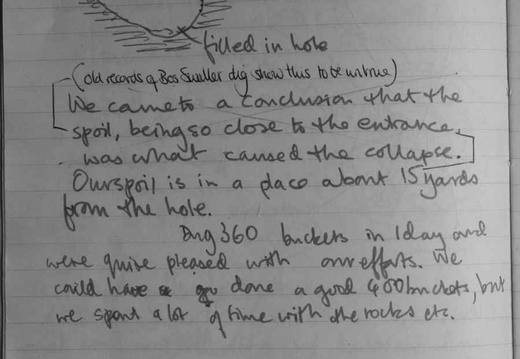 filled in hole
(old records of Bos Swallet dig show this to be untrue)
We came to a conclusion that the
spoil, being so close to the entrance,
was what caused the collapse.
Our spoil is in a place about 15 yards
from the hole.
Dug 360 buckets in 1 day and
were quite pleased with our efforts. We
could have done a good 400 buckets, but
we spent a lot of time with the rocks etc.